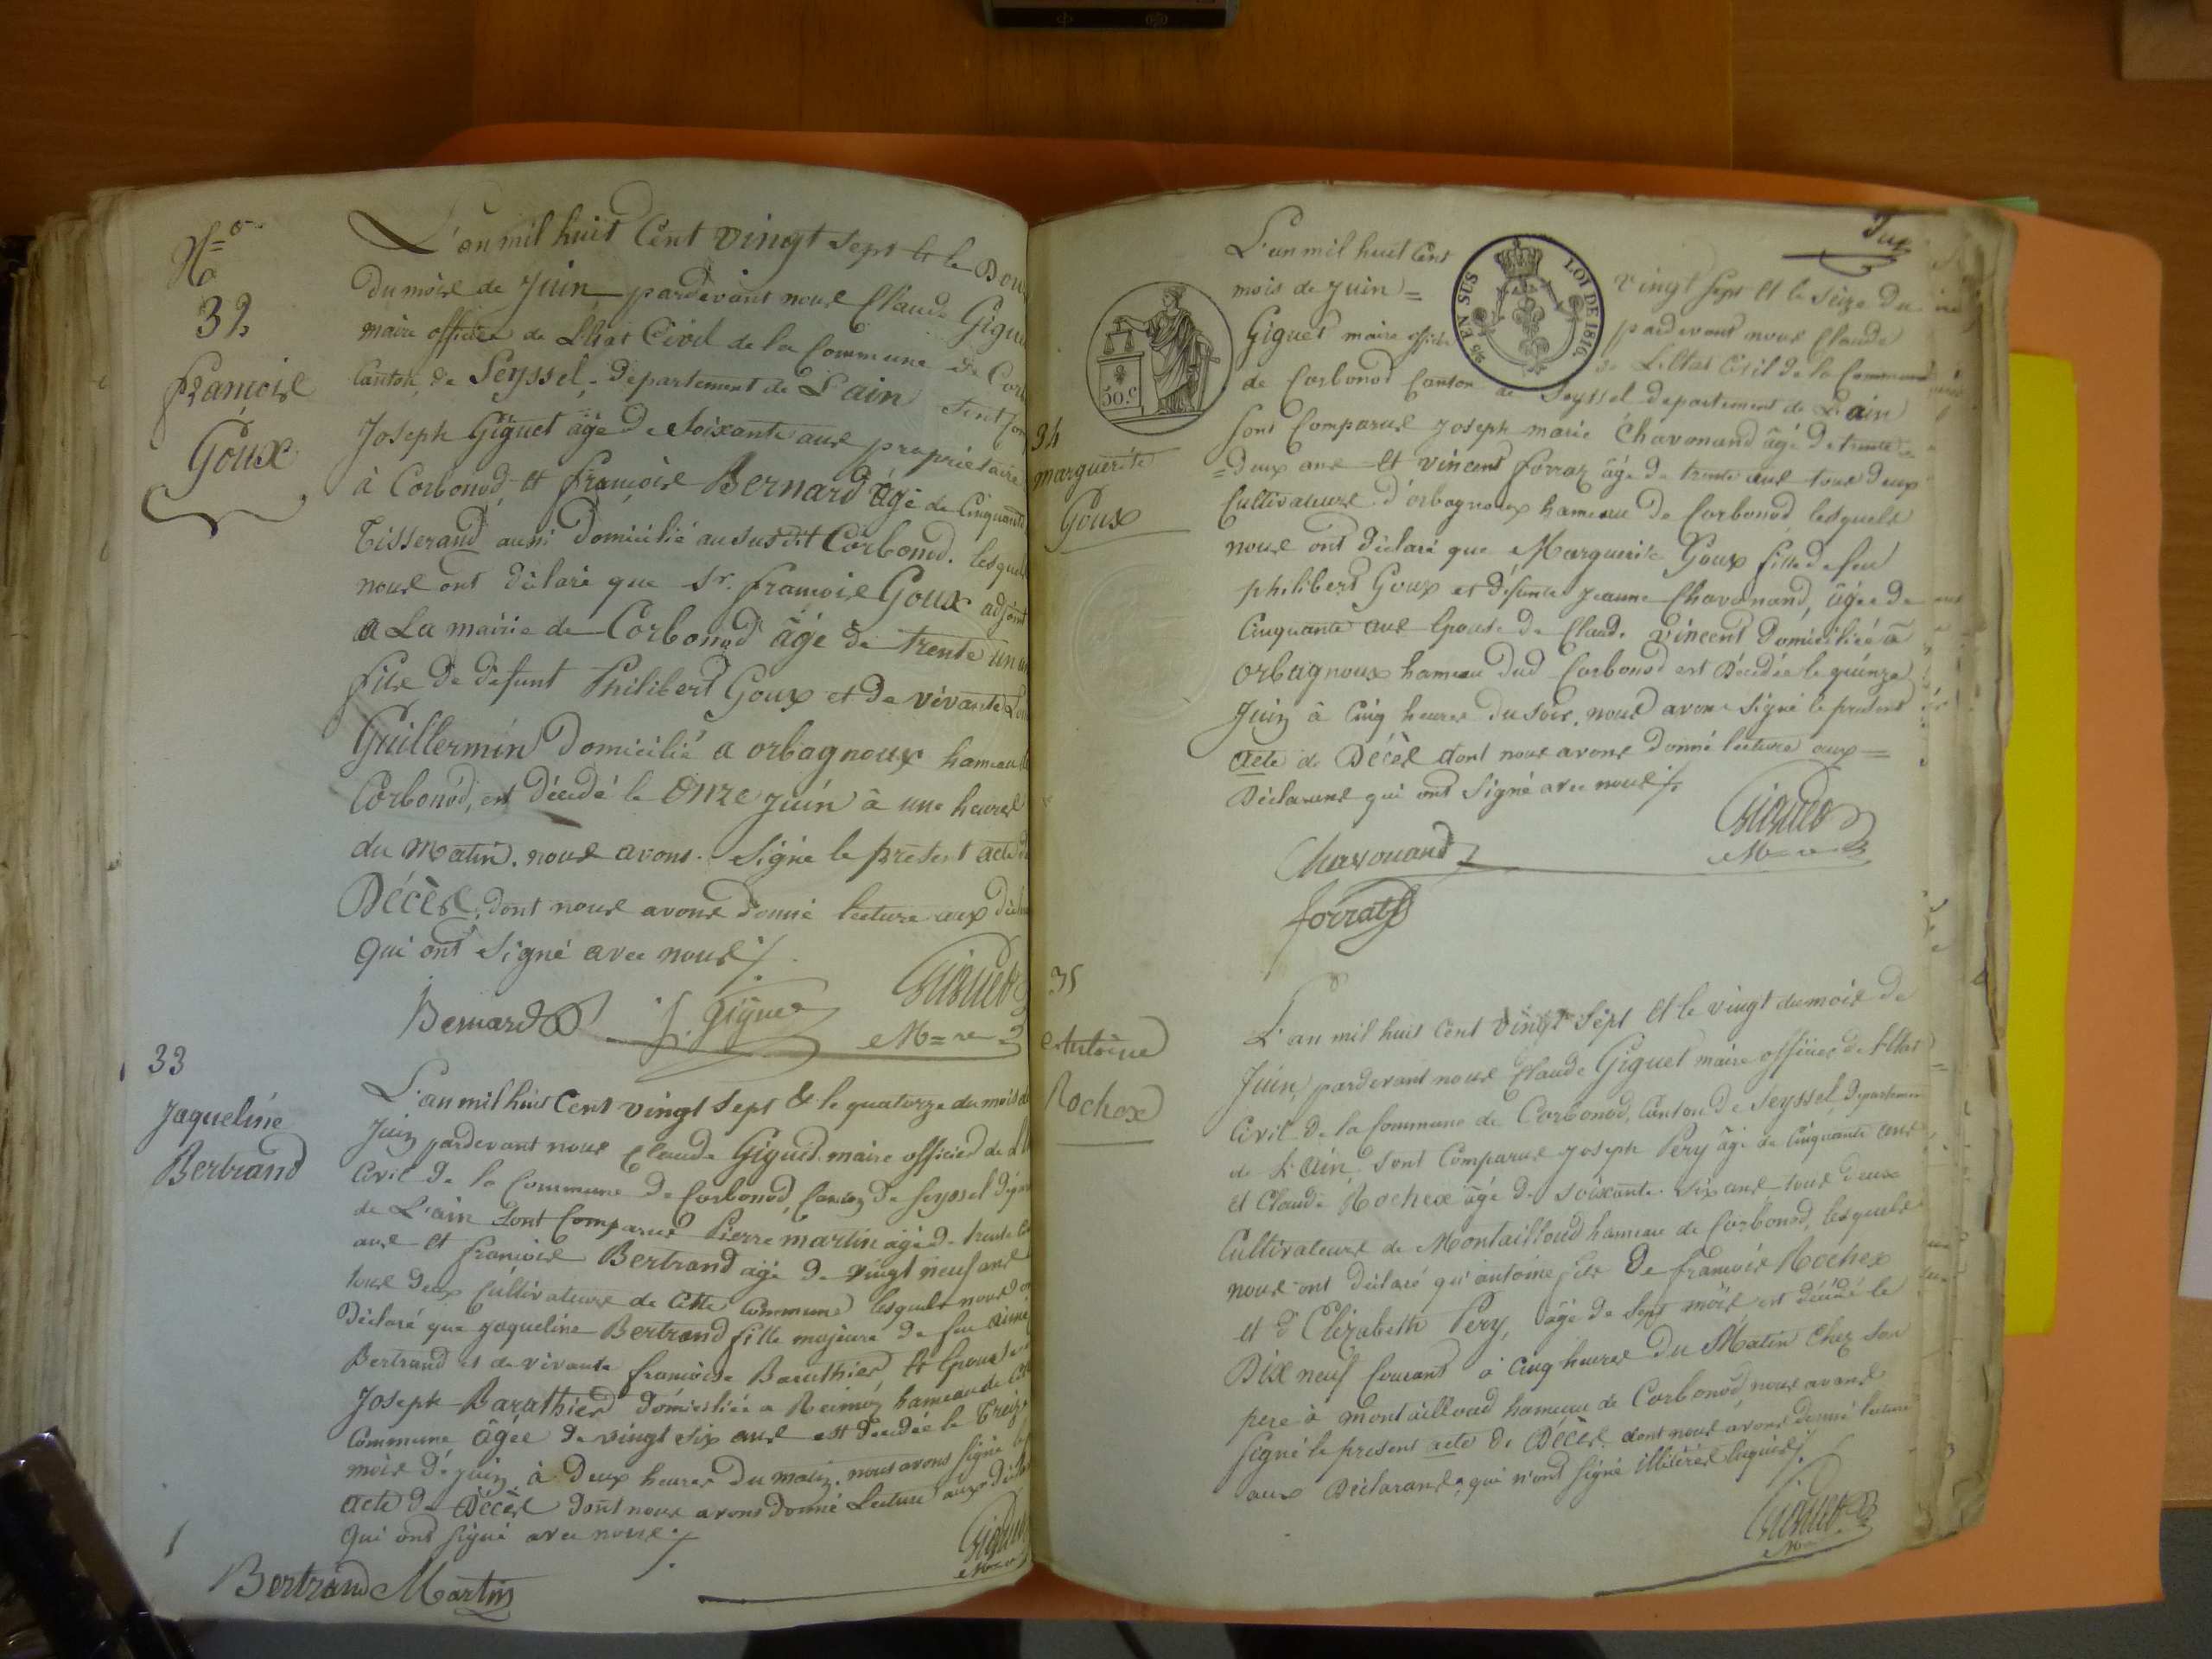 N.o
32
françois
Goux
L'an mil huit Cent vingt sept et le Dou
du mois de Juin pardevant nous Claude Gigu
maire officier de L'Etat Civil de la Commune de Cor
Canton de Seyssel, Departement de L'ain sont
Joseph Giguet âgé de soixante ans propriétaire
à Corbonod, et françois Bernard âgé de Cinquante
Tisserand aussi Domicilié au susdit Corbonod. lesquel
nous ont déclaré que Sr. françois Goux adjoint
a La mairie de Corbonod âgé de trente un an
fils de défunt Philibert Goux et de vivante
Guillermin Domicilié a orbagnoux hameau
Corbonod, est décédé le onze juin à une heures
du matin. nous avons signé le présent acte
Décès, dont nous avons donné lecture aux
qui ont signé avec nous ./.
Bernard J. Giguet Giguet
M=re
33
Jaqueline
Bertrand
L'an mil huit Cent vingt sept & le quatorze du mois de
Juin pardevant nous Claude Giguet maire officier de
Civil de la Commune de Corbonod, Canton de Seyssel
de L'ain sont Comparus Pierre martin âgé de trente
ans et françois Bertrand âgé de vingt neuf ans
tous deux Cultivateurs de Cette Commune lesquels nous
Déclaré que jaqueline Bertrand fille majeure de feu aimé
Bertrand et de vivante françoise Barathier, et Epouse
Joseph Barathier domiciliée a Reimoz hameau de
Commune âgée de vingt six ans est décédée le treize
mois de juin à deux heures du matin. nous avons signé
acte de Décès dont nous avons donné Lecture aux
qui ont signé avec nous ./.
Bertrand Martin Giguet
34
marguerite
Goux
50.C
5/6 EN SUS LOI DE 1816.
L'an mil huit Cent vingt sept et le seize du
mois de juin = pardevant nous Claude
Giguet maire officier de L'Etat Civil de la Commune
de Corbonod Canton de Seyssel departement de L'ain
sont Comparus joseph marie Chavanand âgé de trente
=deux ans et vincent forraz âgé de trente ans tous deux
Cultivateurs d'orbagnoux hameau de Corbonod lesquels
nous ont déclaré que Marguerite Goux fille de feu
philibert Goux et défunte jeanne Chavanand, âgée de
Cinquante ans Epouse de Claude vincent domiciliée à
orbagnoux hameau dud Corbonod est Décédée le quinze
Juin à Cinq heures du soir. nous avons signé le présent
acte de Décès dont nous avons donné lecture aux =
Déclarans qui ont signé avec nous ./.
Giguet
Chavanand
forrat
35
Antoine
Rochex
L'an mil huit Cent vingt sept et le vingt du mois de
Juin, pardevant nous Claude Giguet maire officier de l'Etat
Civil de la Commune de Corbonod, Canton de Seyssel, departement
de L'ain, sont Comparus joseph Pery âgé de Cinquante ans
et Claude Rochex âgé de soixante six ans tous deux
Cultivateurs de Montailloud hameau de Corbonod, lesquels
nous ont déclaré qu'antoine fils de françois Rochex
et d'Elizabeth Pery, âgé de sept mois est décédé le
Dix neuf Courant à Cinq heures du Matin Chez son
pere à montailloud hameau de Corbonod, nous avons
signé le present acte de Décès dont nous avons donné lecture
aux Déclarans, qui n'ont signé illitérés Enquis ./.
Giguet